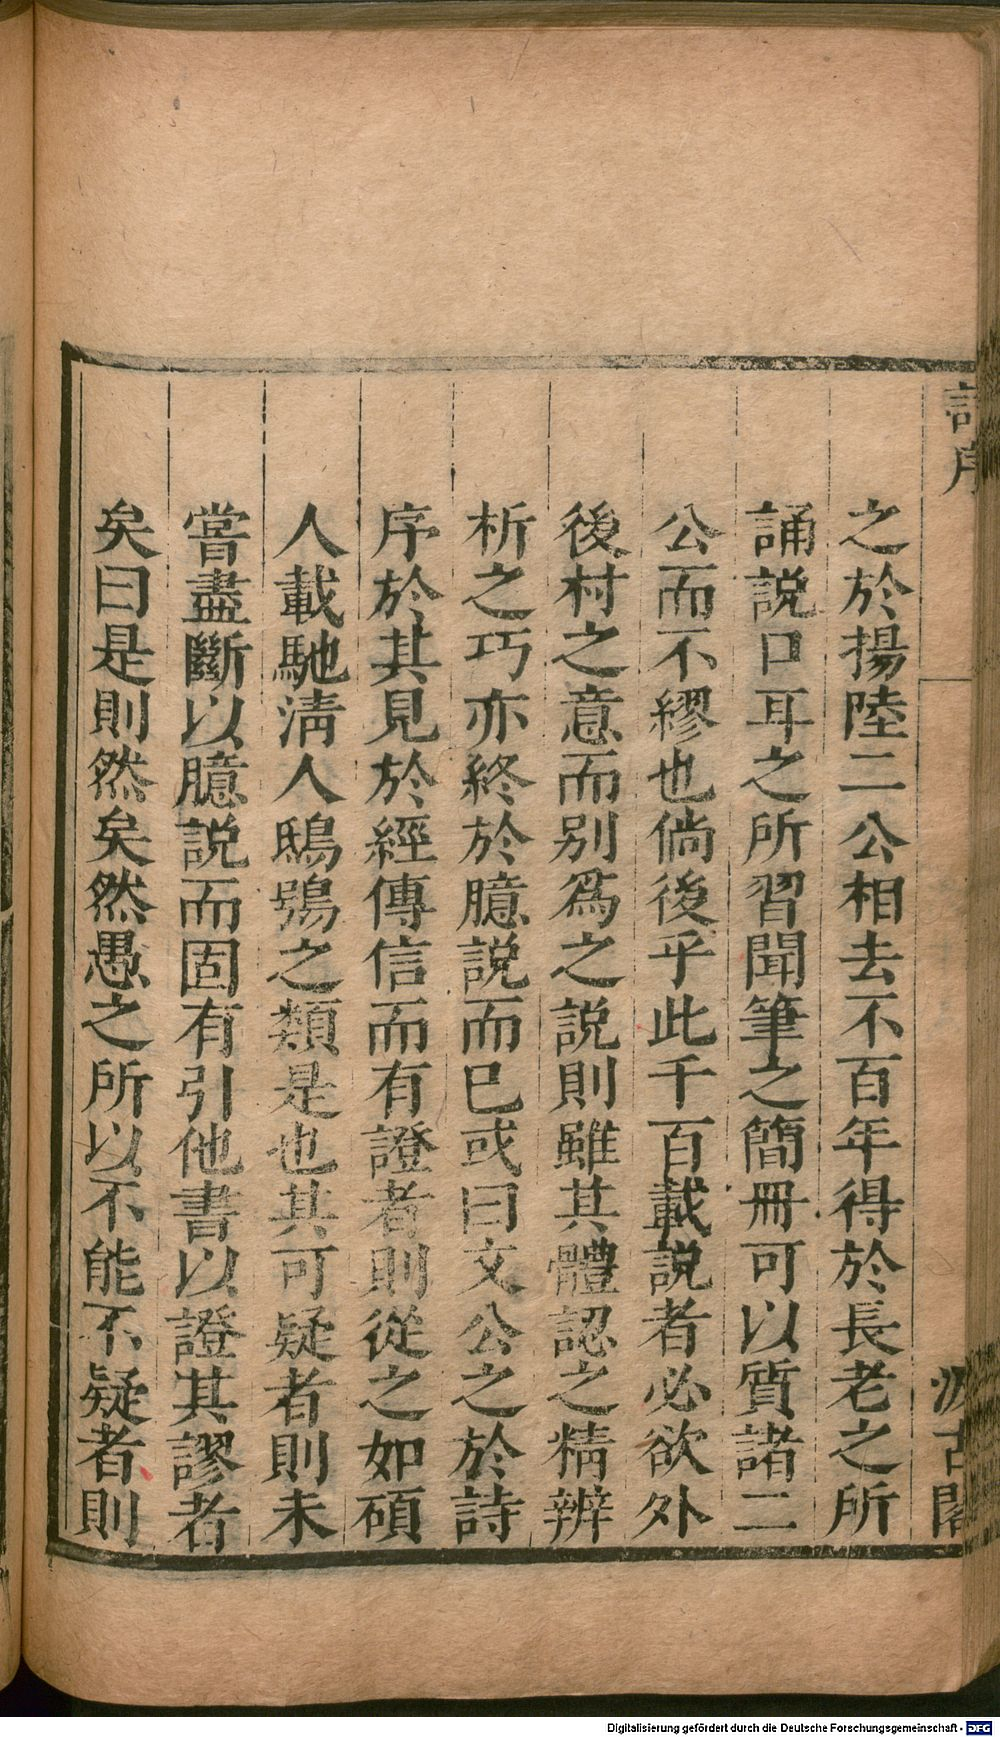 詩序
汲古閣
之於揚陸二公相去不百年得於長老之所
誦説口耳之所習聞筆之簡冊可以質諸二
公而不繆也倘後乎此千百載説者必欲外
後村之意而别爲之説則雖其體認之精辨
析之巧亦終於臆説而已或曰文公之於詩
序於其見於經傳信而有證者則從之如碩
人載馳淸人鴟鴞之類是也其可疑者則未
嘗盡斷以臆説而固有引他書以證其謬者
矣曰是則然矣然愚之所以不能不疑者則
Digitalisierung gefördert durch die Deutsche Forschungsgemeinschaft - DFG